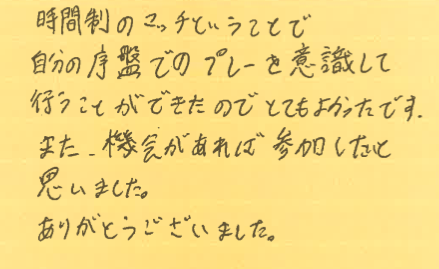 時間制のマッチということで
自分の序盤でのプレーを意識して
行うことができたのでとてもよかったです.
また、機会があれば参加したいと
思いました。
ありがとうございました。